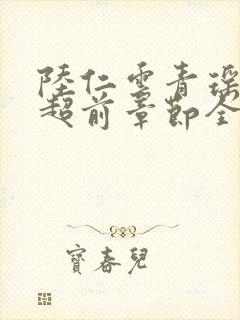 陸仁雲青瑶
超前章節全
寶春兒